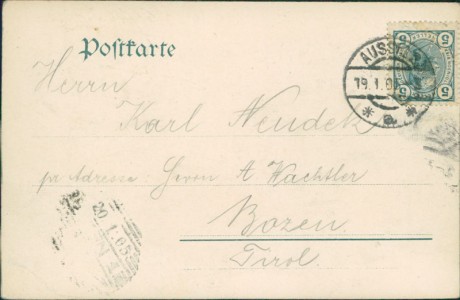 Postkarte
5 5
5 5
AUSS
19.1.0
* a *
Herrn
Karl Neudek
pr Adresse: Herrn A Wachtler
Bozen
Tirol.
20.1.08